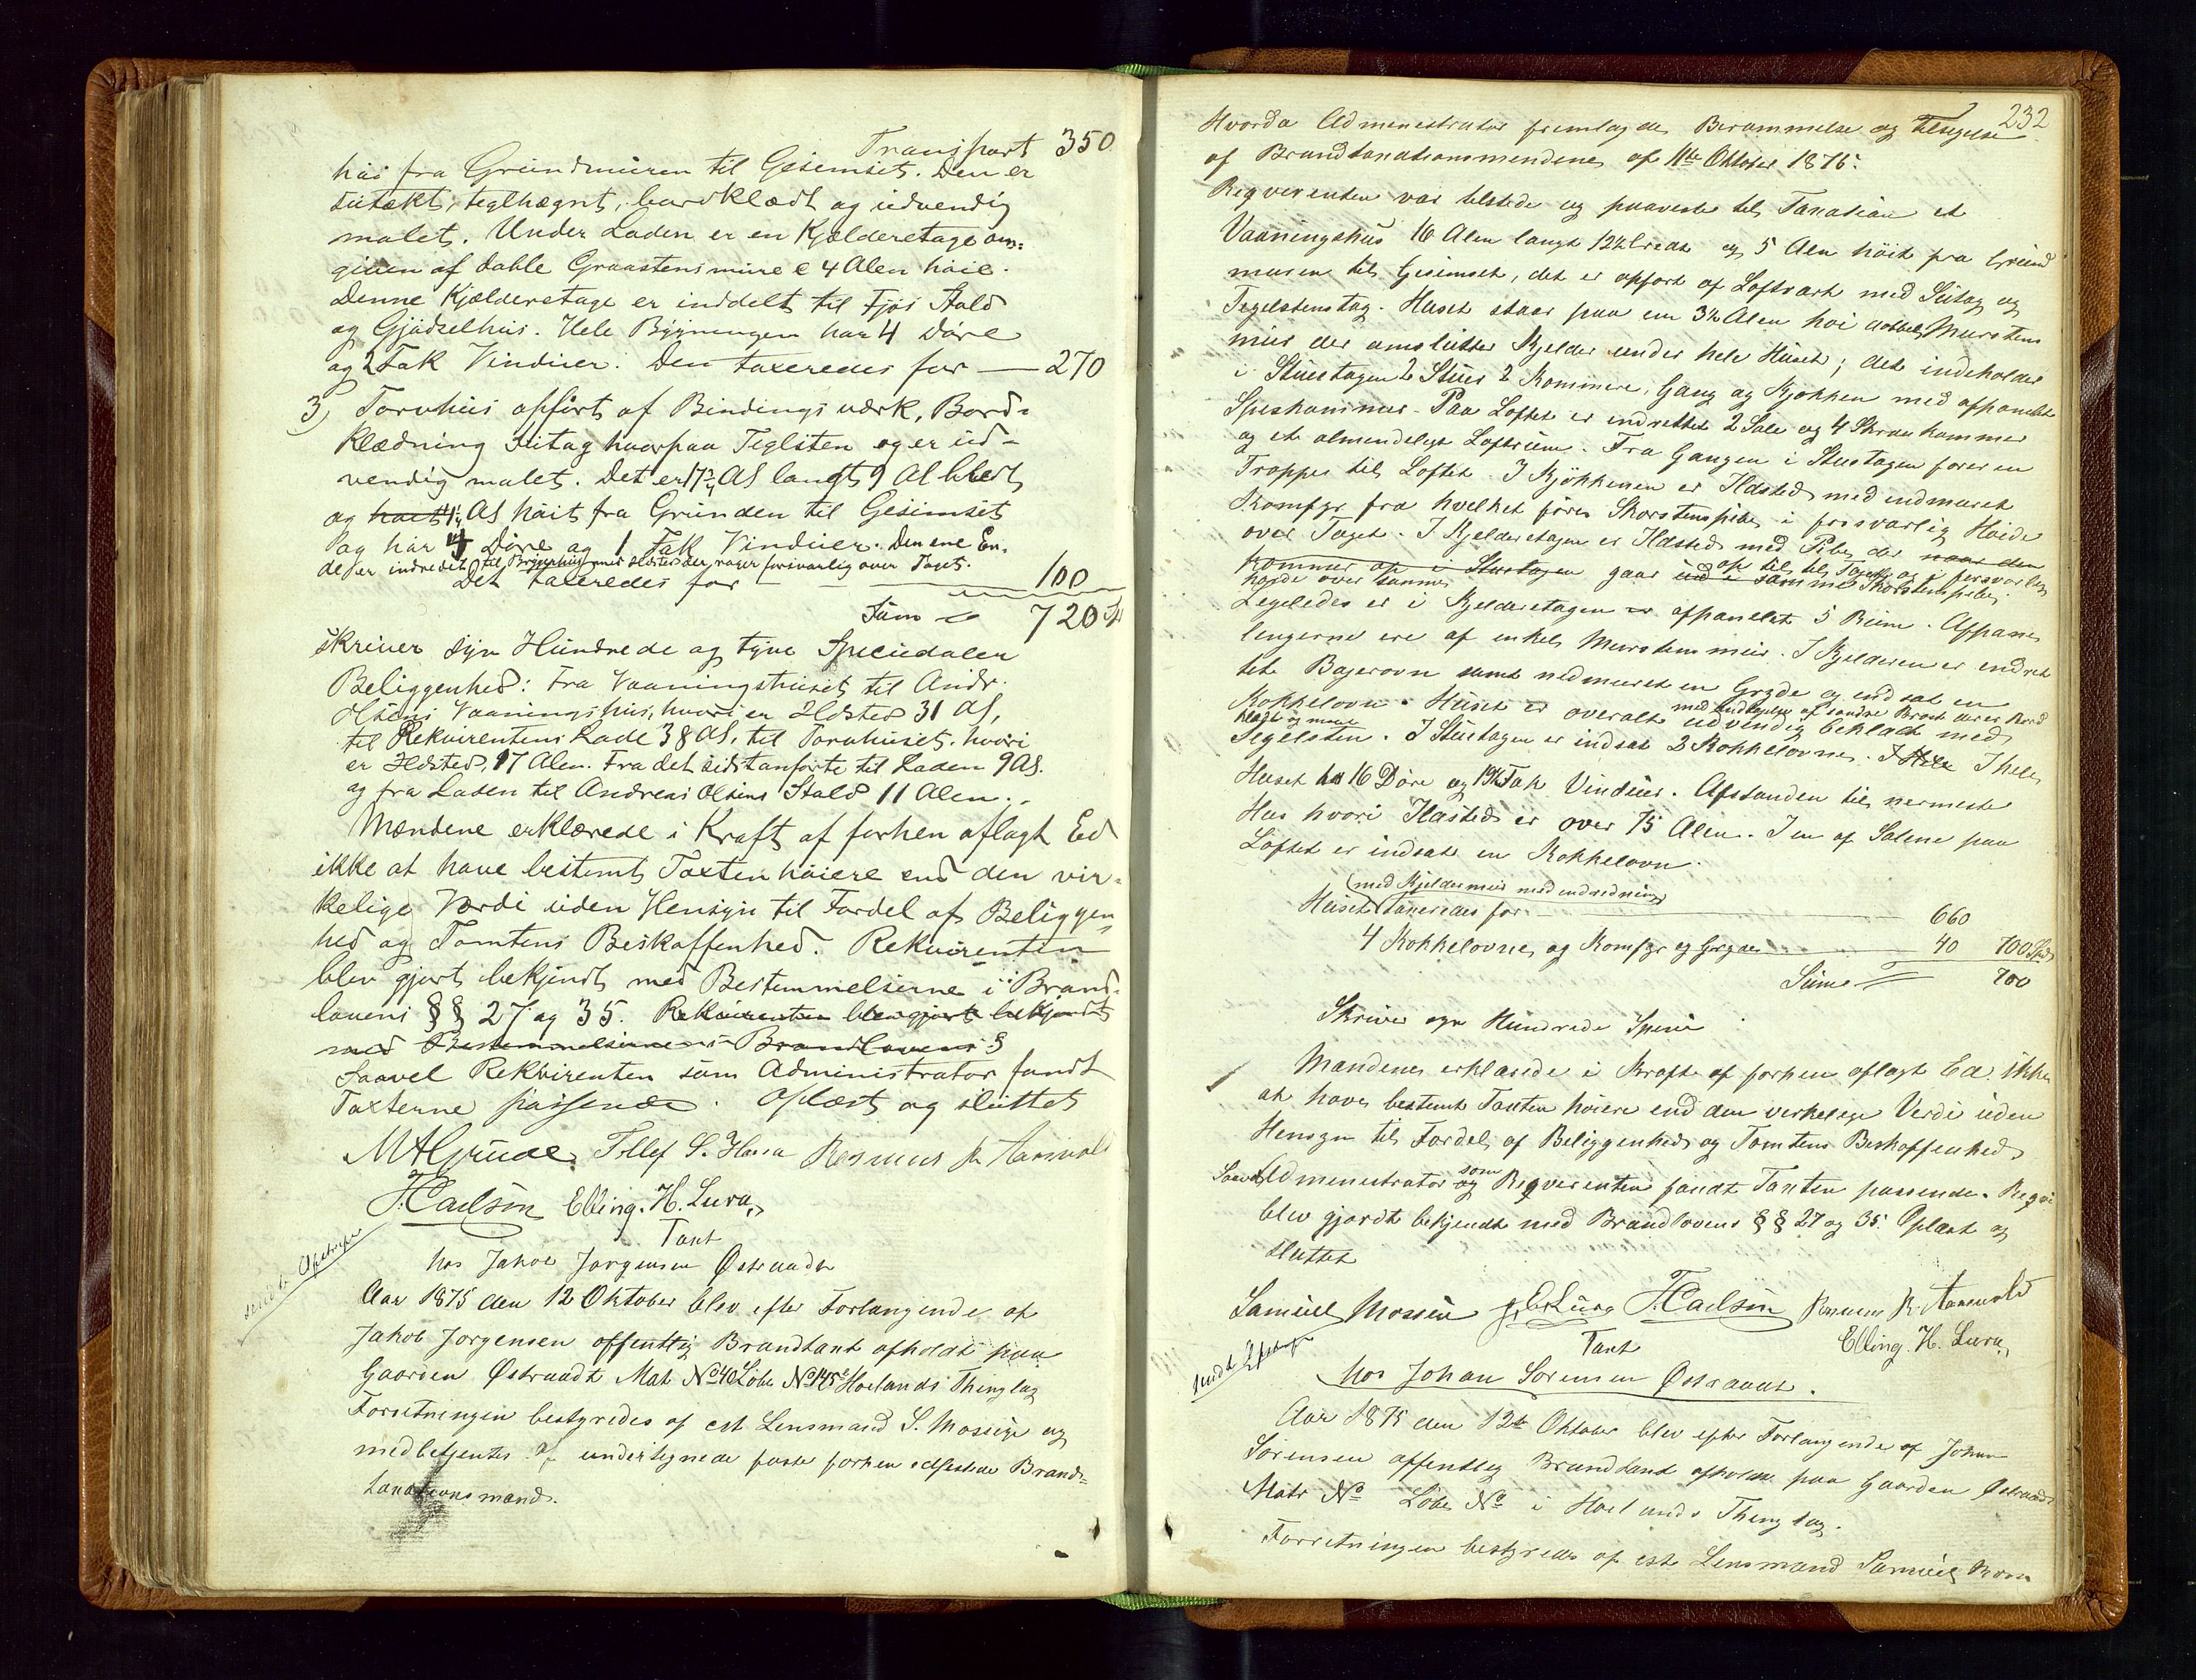 Transport 350
höi fra Grundmuren til Gesimset. Den er
sutækt, teglhægnt, bordklædt og udvendig
malet. Under Laden er en Kjælderetage om-
given af doble Graastensmure c 4 Alen höie.
Denne Kjælderetage er inddelt til Fjös Stald
og Gjödselhus. Hele Bygningen har 4 Döre
og 2 Fak Vinduer. Den taxeredes for — 270
3) Torvhus opfört af Bindingsværk, Bord-
klædning Sutag hvorpaa Teglsten og er ud-
vendig malet. Det er 17¾ Al langt 9 Al bredt
og höit 4½ Al höit fra Grunden til Gesimset
og har 4 Döre og 1 Fak Vinduer. Den ene En-
de er indredet til Bryggerhus med Ildsted der rager forsvarlig over Taget.
Det taxeredes for — 100
Sum 720 Sp
skriver syv Hundrede og tyve Speciedaler
Beliggenhed: Fra Vaaningshuset til Andr.
Olsens Vaaningshus, hvori er Ildsted 31 Al,
til Rekvirentens Lade 38 Al, til Torvhuset, hvori
er Ildsted, 17 Alen. Fra det sidstanförte til Laden 9 Al.
og fra Laden til Andreas Olsens Stald 11 Alen.
Mændene erklærede i Kraft af forhen aflagt Ed
ikke at have bestemt Taxten höiere end den vir-
kelige Værdi uden Hensyn til Fordel af Beliggen-
hed og Tomtens Beskaffenhed. Rekvirenten
blev gjort bekjendt med Bestemmelserne i Brand-
lovens §§ 27 og 35. Rekvirenten blev gjort bekjendt
med Bestemmelserne i Brandlovens §
Saavel Rekvirenten som Administrator fandt
Taxterne passende. Oplæst og sluttet
M A Grude Tollef S. Hana Rasmus R Aarsvold
T. Carlson Elling. H. Lura
Taxt
hos Jakob Jörgensen Östraadt
sendt Afskrift
Aar 1875 den 12 Oktober blev efter Forlangende af
Jakob Jörgensen offentlig Brandtaxt afholdt paa
Gaarden Östraadt Mat No 40 Löbe No 145c Höilands Thinglag
Forretningen bestyredes af cst. Lensmand S. Mossige og
medbetjentes af undertegnede faste forhen edfæstede Brand-
taxationsmænd.
232
Hvorda Admenestrator fremlagde Berammelse og Tilsigelse
af Brandtaxationsmendene af 11te Oktober 1875.
Reqverenten var tilstede og paaveste til Taxation et
Vaaningshus 16 Alen langt 12½ bredt og 5 Alen höit fra Grund
muren til Gesimset, det er opfört af Loftvært med Sutag og
Tegelstenstag. Huset staar paa en 3½ Alen höi dobbelt Murstens
mur der omslutter Kjelder under hele Huset; det indeholder
i Stuetagen 2 Stuer 2 Kommere, Gang og Kjökken med afpanelet
Speskammer. Paa Loftet er endrettet 2 Sale og 4 Skraakammer
og et almendeligt Loftrum. Fra Gangen i Stuetagen förer en
Trappe til Loftet. I Kjökkenen er Ildsted med indmuret
Komfyr fra hvelket förer Skorstenspibe i forsvarlig Höide
over Taget. I Kjelderetagen er Ildsted med Pibe, der naar den
kommer op i Stuetagen gaar ud i samme Skorstenspibe.
op til Taget og i forsvarlig
höyde over samme
Legeledes er i Kjelderetagen er afpanelet 5 Rum. Afpane
lengerne ere af enkel Murstens mur. I Kjelderen er endret
tet Bagerovn samt nedmuret en Gryde og endsat en
Kokkelovn. Huset er overalt udvendig beklædt med
med Undtagelse af söndre Brost der er Bord
klædt og malet
Tegelsten. I Stuetagen er indsat 3 Kokkelovne. I Hele I hele
Huset har 16 Döre og 19½ Fak Vinduer. Afstanden til nermeste
Hus hvori Ildsted er over 75 Alen. I en af Salene paa
Loftet er indsat en Kokkelovn.
(med Kjeldermur med endredning)
Huset taxeredes for — 660
4 Kokkelovne og Komfyr og Gryde — 40 700 Spd
Sum 700
Skriver syv Hundrede Specie
Mændene erklærede i Kraft af forhen aflagt Ed ikke
at have bestemt Taxten höiere end den verkelege Verdi uden
Hensyn til Fordel af Beliggenhed og Tomtens Beskaffenhed
Saavel Admenestrator og som Reqverenten fandt Taxten passende. Reqv
blev gjordt bekjendt med Brandlovens §§ 27 og 35. Oplæst og
sluttet
Samuel Mossige T. Carlson Rasmus R. Aarsvold
Elling. H. Lura
Taxt
sendt Afskrift
hos Johan Sörensen Östraadt.
Aar 1875 den 12te Oktober blev efter Forlangende af Johan
Sörensen offentlig Brandtaxt afholdt paa Gaarden Östraadt
Matr No Löbe No i Höilands Thinglag.
Forretningen bestyredes af cst Lensmand Samuel Moss